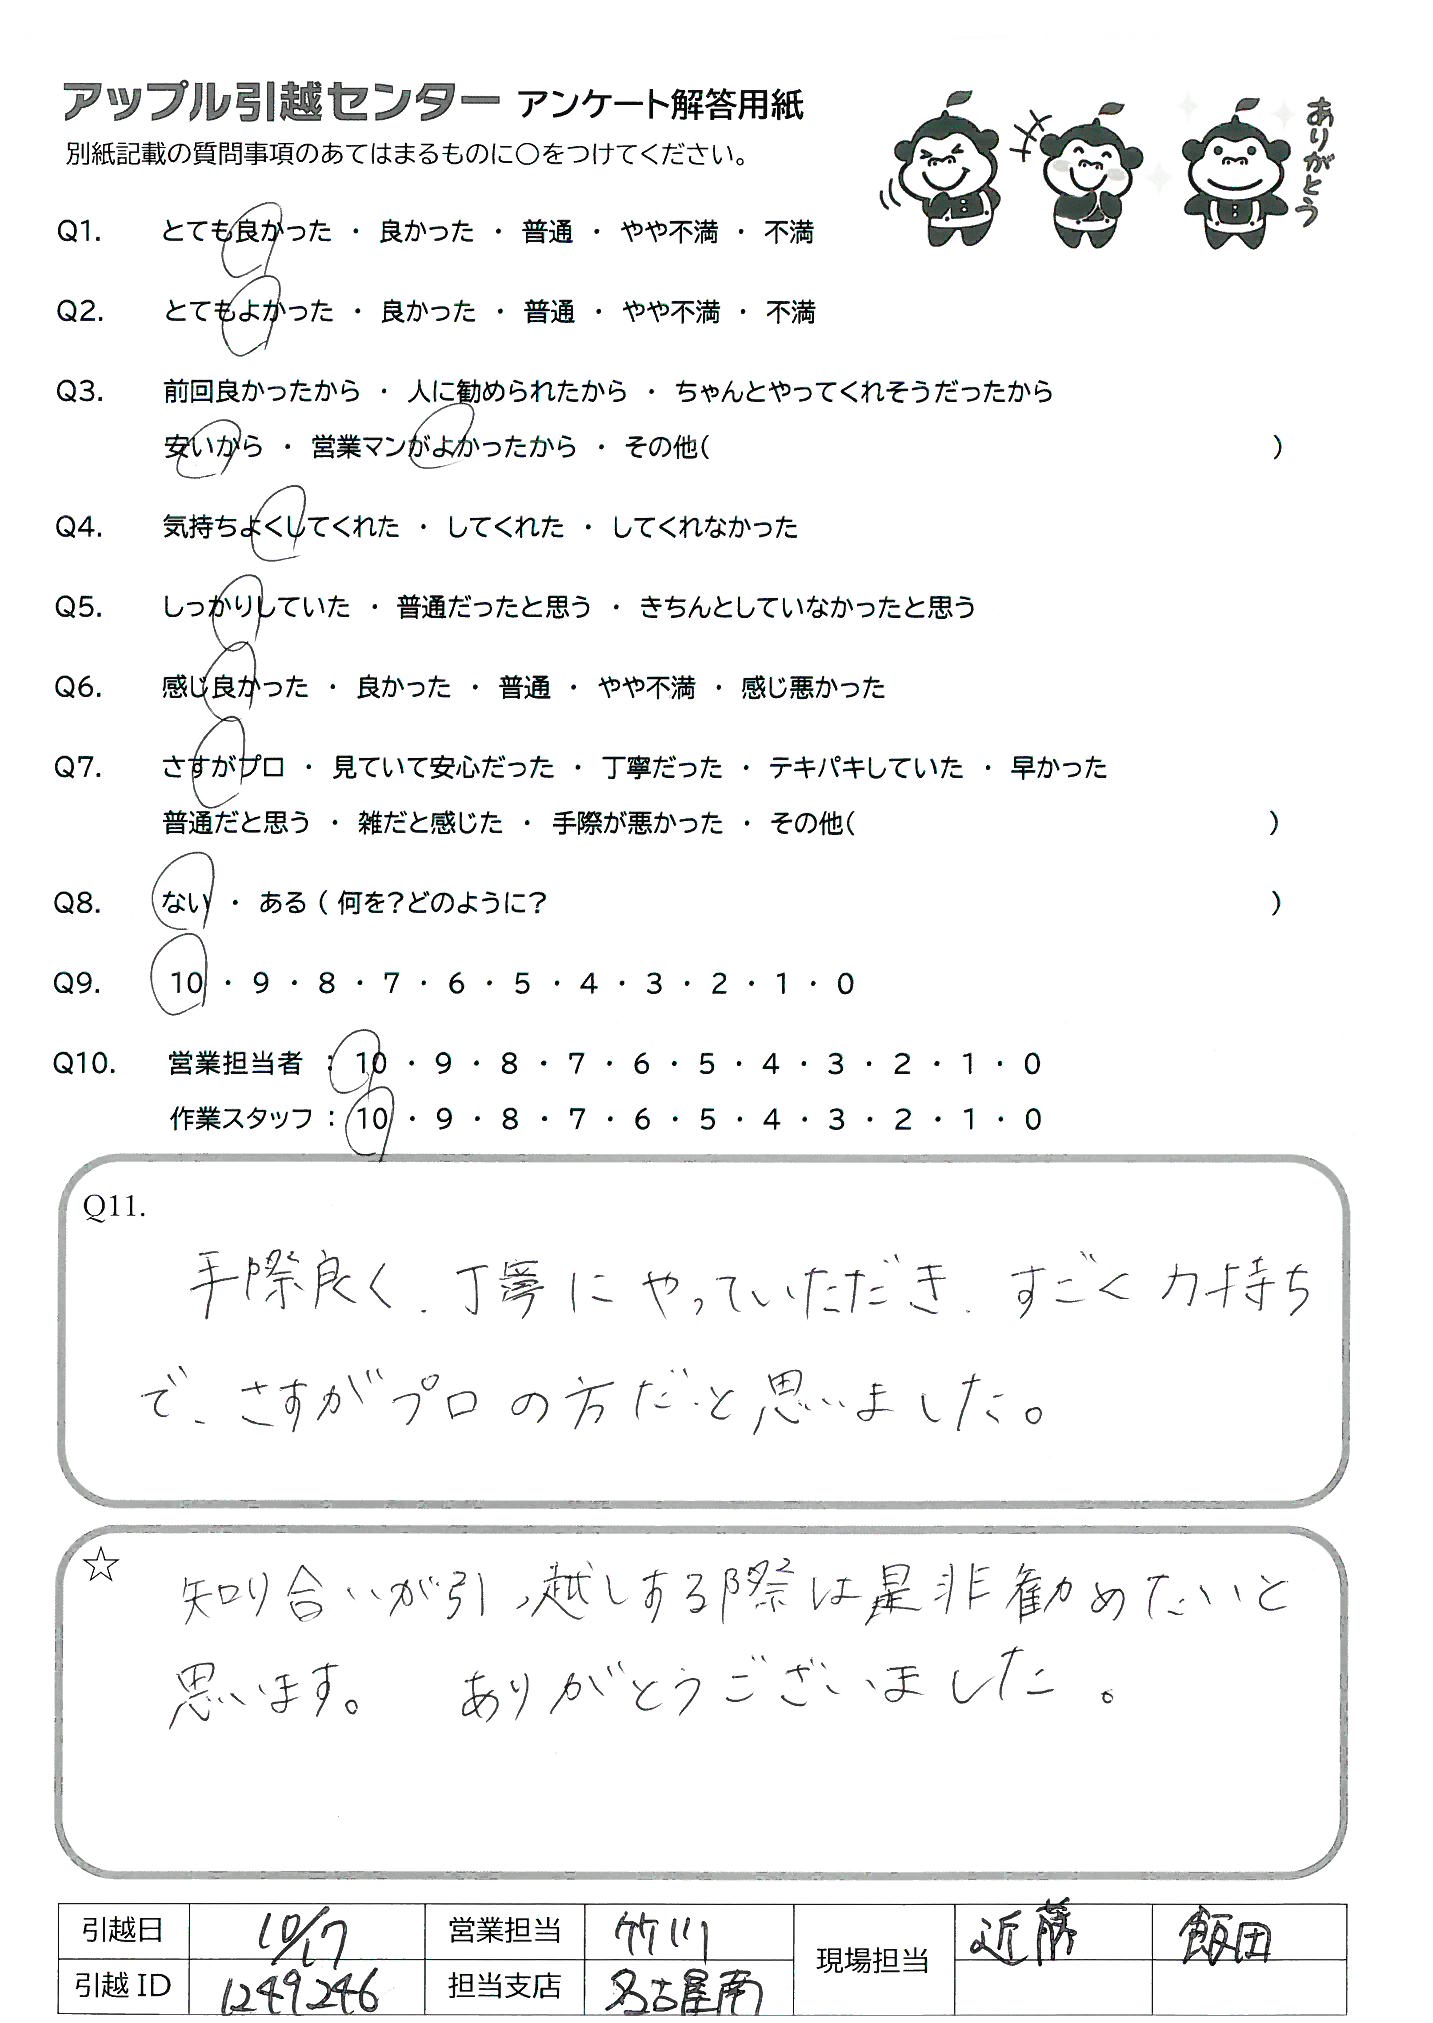 アップル引越センター アンケート解答用紙
別紙記載の質問事項のあてはまるものに○をつけてください。
ありがとう
Q1. とても良かった ・ 良かった ・ 普通 ・ やや不満 ・ 不満
Q2. とてもよかった ・ 良かった ・ 普通 ・ やや不満 ・ 不満
Q3. 前回良かったから ・ 人に勧められたから ・ ちゃんとやってくれそうだったから
安いから ・ 営業マンがよかったから ・ その他( )
Q4. 気持ちよくしてくれた ・ してくれた ・ してくれなかった
Q5. しっかりしていた ・ 普通だったと思う ・ きちんとしていなかったと思う
Q6. 感じ良かった ・ 良かった ・ 普通 ・ やや不満 ・ 感じ悪かった
Q7. さすがプロ ・ 見ていて安心だった ・ 丁寧だった ・ テキパキしていた ・ 早かった
普通だと思う ・ 雑だと感じた ・ 手際が悪かった ・ その他( )
Q8. ない ・ ある ( 何を?どのように? )
Q9. 10 ・ 9 ・ 8 ・ 7 ・ 6 ・ 5 ・ 4 ・ 3 ・ 2 ・ 1 ・ 0
Q10. 営業担当者 : 10 ・ 9 ・ 8 ・ 7 ・ 6 ・ 5 ・ 4 ・ 3 ・ 2 ・ 1 ・ 0
作業スタッフ : 10 ・ 9 ・ 8 ・ 7 ・ 6 ・ 5 ・ 4 ・ 3 ・ 2 ・ 1 ・ 0
Q11.
手際良く、丁寧にやっていただき、すごく力持ち
で、さすがプロの方だと思いました。
☆ 知り合いが引っ越しする際は是非勧めたいと
思います。 ありがとうございました。
引越日 10/17 営業担当 竹川 現場担当 近藤 飯田
引越ID 1249246 担当支店 名古屋南